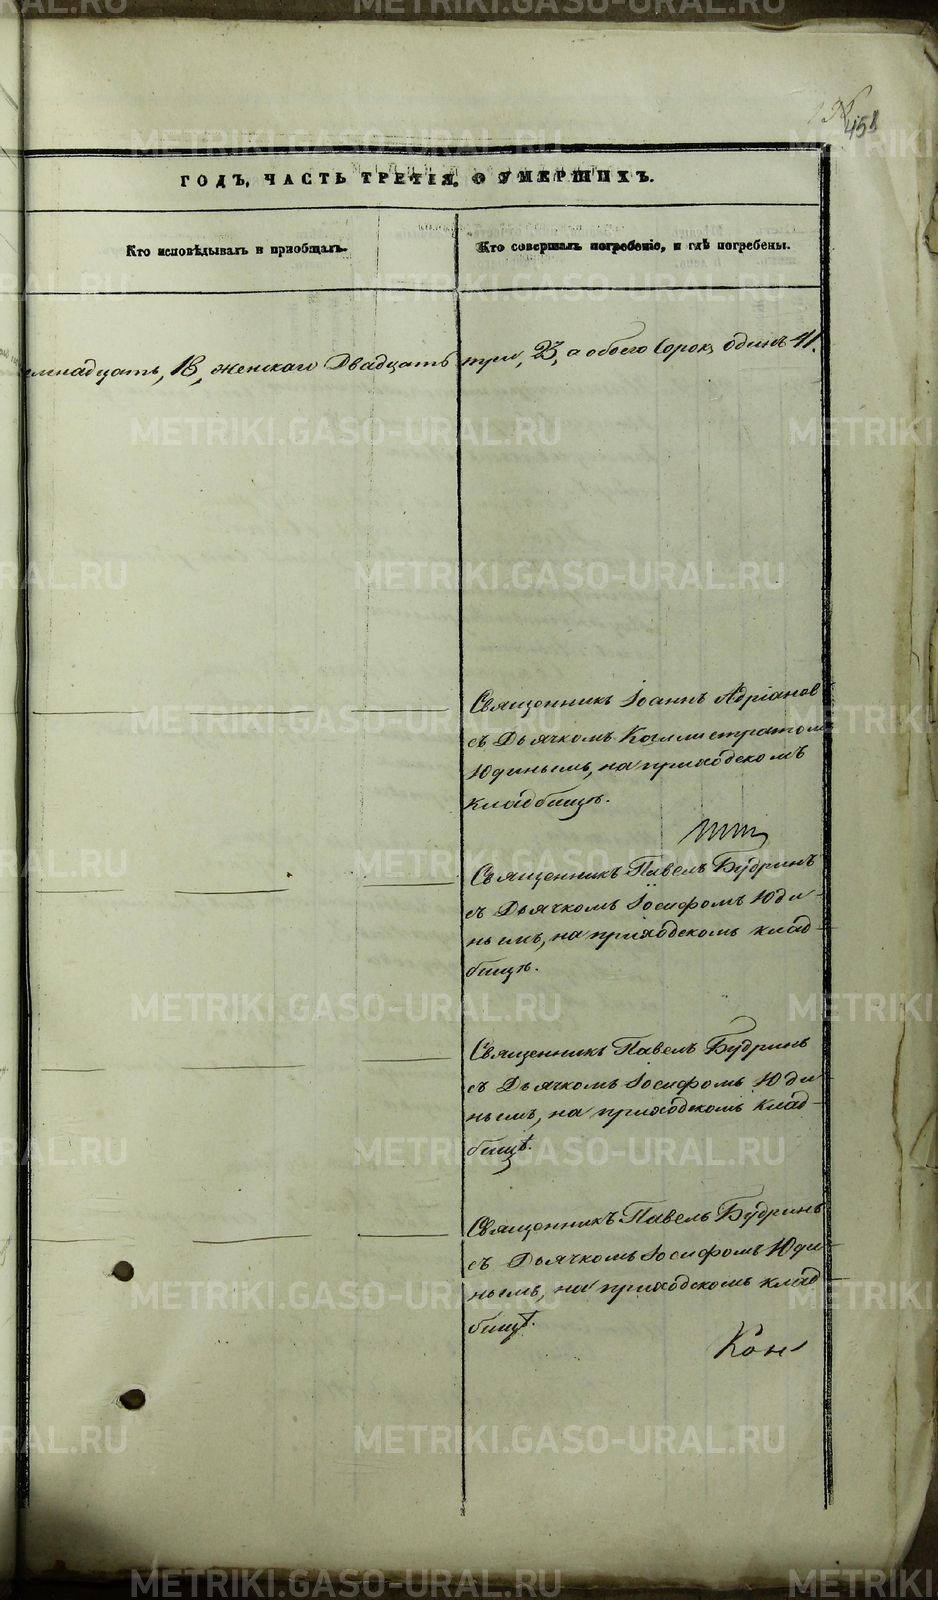 458
ГОДЪ, ЧАСТЬ ТРЕТІЯ, О УМЕРШИХЪ.
Кто исповѣдывалъ и пріобщалъ.
Кто совершалъ погребеніе, и гдѣ погребены.
емнадцать, 18, женскаго Двадцать три, 23, а обоего Сорокъ одинъ 41.
Священникъ Іоаннъ Адріановъ
съ Дьячкомъ Каллистратомъ
Юдинымъ, на приходскомъ
кладбищѣ.
Священникъ Павелъ Будринъ
съ Дьячкомъ Іосифомъ Юди-
нымъ, на приходскомъ клад-
бищѣ.
Священникъ Павелъ Будринъ
съ Дьячкомъ Іосифомъ Юди-
нымъ, на приходскомъ клад-
бищѣ.
Священникъ Павелъ Будринъ
съ Дьячкомъ Іосифомъ Юди-
нымъ, на приходскомъ клад-
бищѣ.
Кон
METRIKI.GASO-URAL.RU